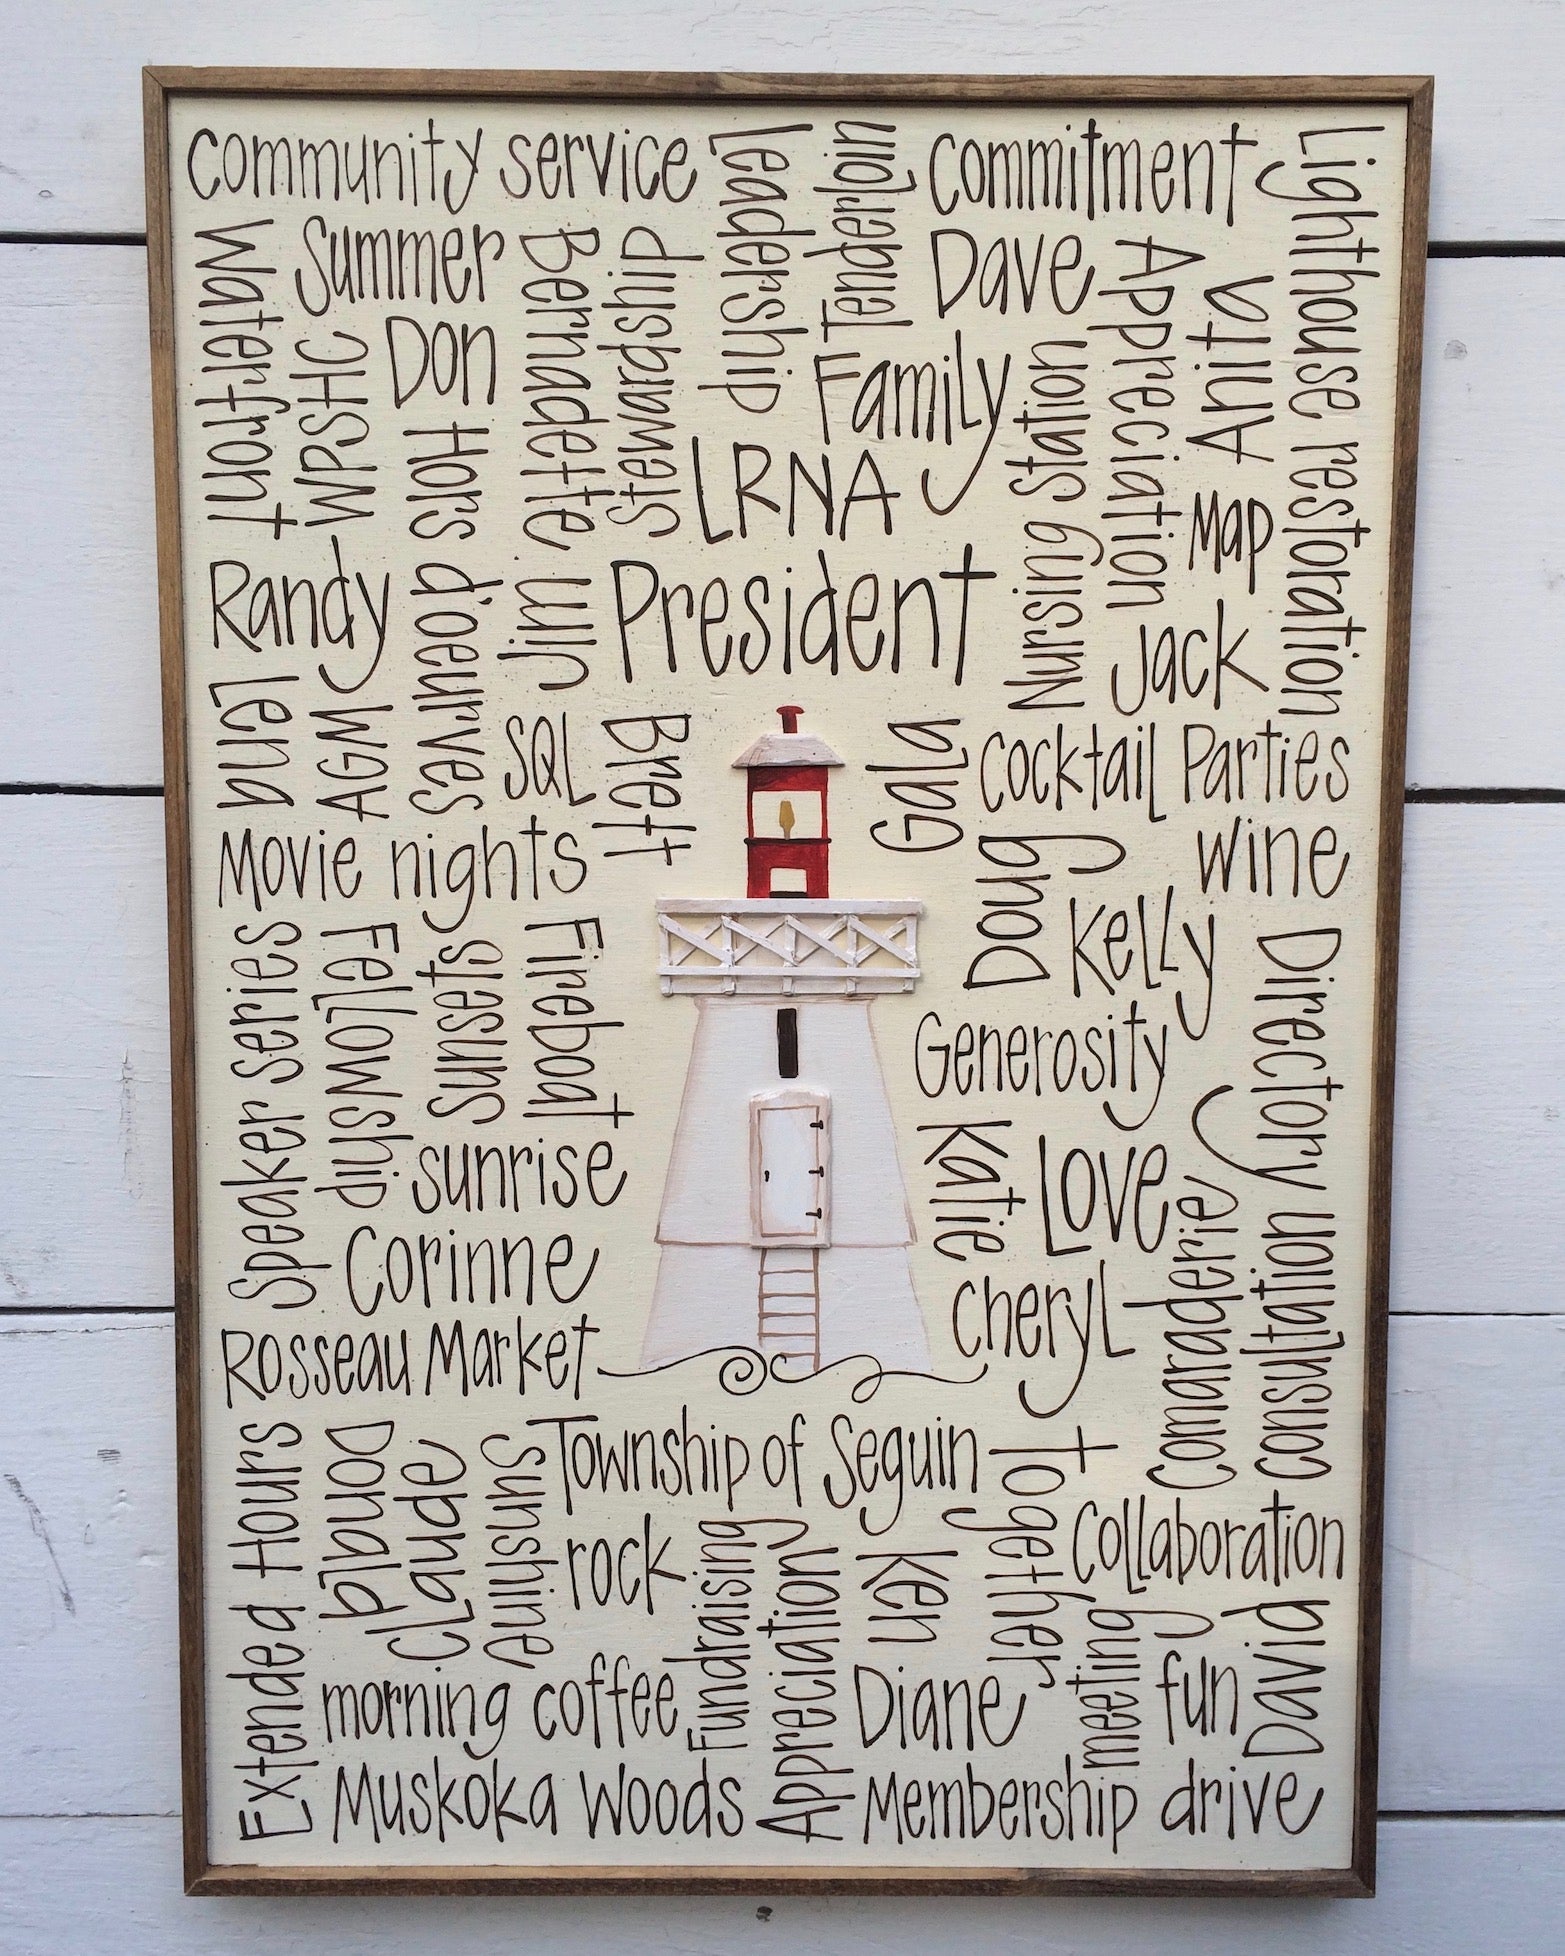 Community service
Leadership
Tenderloin
Commitment
Lighthouse restoration
Waterfront
Summer
Bernadette
Stewardship
Dave
Appreciation
Anita
WPSHC
Don
Family
Nursing Station
Hors d'oeurves
LRNA
Map
Randy
Jim
President
Jack
Lend
AGM
SQL
Brett
Gala
Cocktail Parties
Movie nights
Doug
Wine
Kelly
Speaker series
Fellowship
Sunsets
Fireboat
Directory
Generosity
sunrise
Katie
Love
Corinne
Cheryl
Comaraderie
consultation
Rosseau Market
Extended Hours
Donald
Claude
Sunshine
Township of Seguin
Together
rock
Fundraising
Appreciation
Ken
Collaboration
morning coffee
Diane
meeting
fun
David
Muskoka Woods
Membership drive